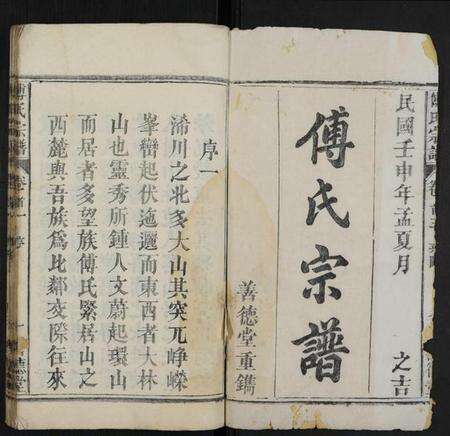 民國壬申年孟夏月
之吉
傅氏宗譜
善德堂重鐫
序一
浠川之北多大山其突兀崢嶸
峯巒起伏迤邐而東西者大林
山也靈秀所鍾人文蔚起環山
而居者多望族傅氏緊居山之
西麓與吾族為比鄰交際往來
傅氏宗譜